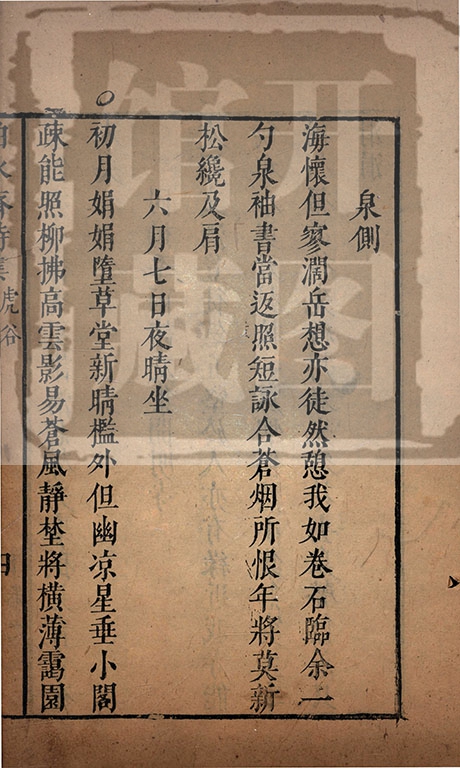 泉側
海懷但寥濶岳想亦徒然憩我如卷石臨余一
勺泉袖書當返照短詠合蒼烟所恨年將莫新
松纔及肩
六月七日夜晴坐
初月娟娟墮草堂新晴檻外但幽凉星垂小閣
疎能照柳拂高雲影易蒼風靜埜將橫薄靄園